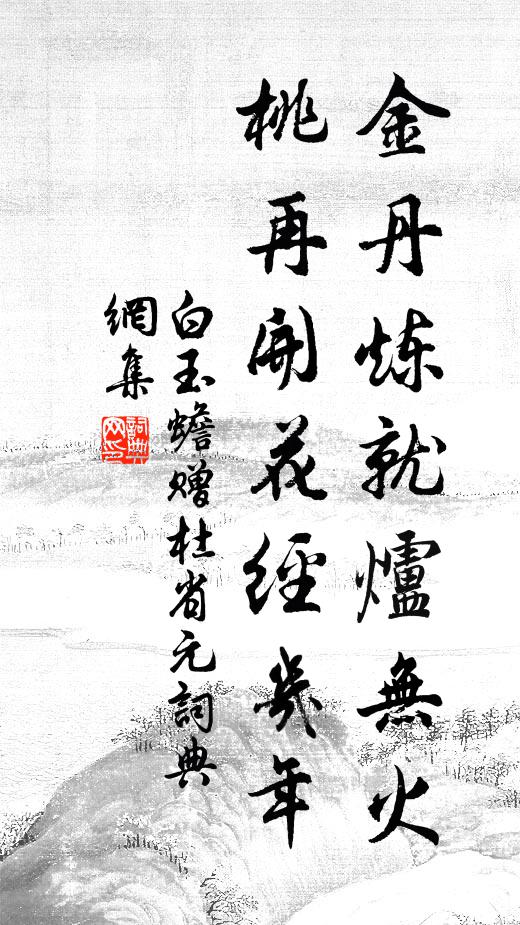 金丹炼就爐無火
桃再開花經幾年
白玉蟾赠杜省元詞典
網集
詞典
网印